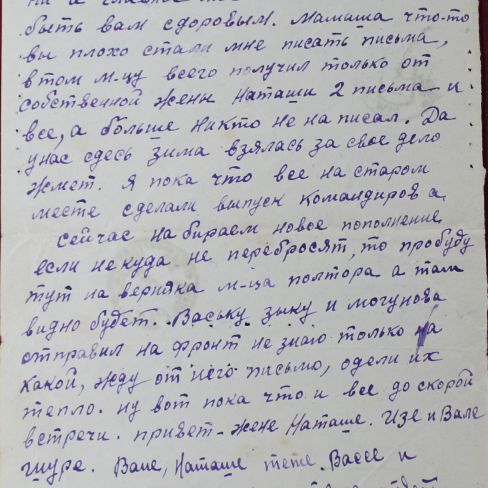 быть вам здоровым. Мамаша что-то
вы плохо стали мне писать письма,
в том м-цу всего получил только от
собственной жены Наташи 2 письма и
все, а больше никто не написал. Да
у нас сдесь зима взялась за свое дело
жмет. Я пока что все на старом
месте сделали выпуск командиров а
сейчас набираем новое пополнение
если некуда не перебросят, то пробуду
тут на верняка м-ца полтора а там
видно будет. Ваську зыку и могунова
отправил на фронт не знаю только на
какой, жду от него письмо, одели их
тепло. ну вот пока что и все до скорой
встречи. привет - жене Наташе. Изе и Вале
Шуре. Ване, Наташе тете. Вассе и